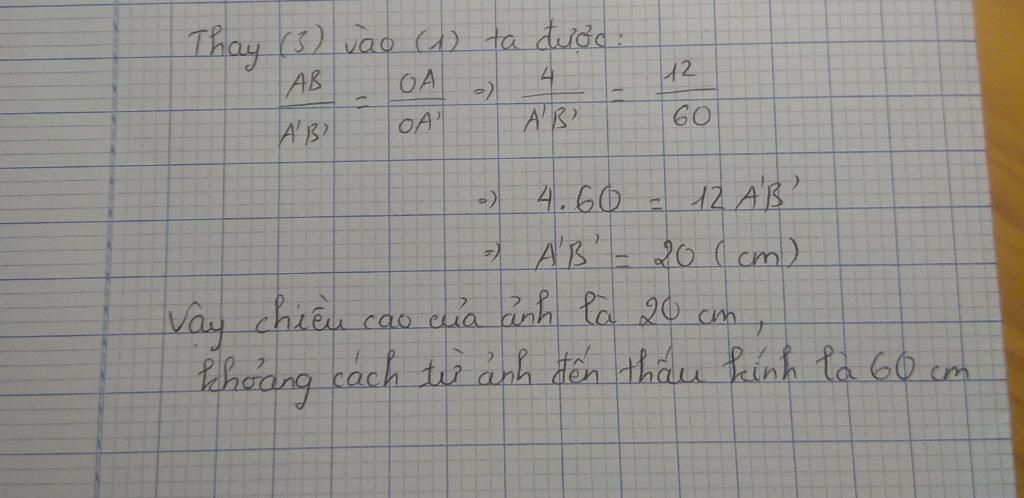 Thay (3) vào (1) ta được:
AB/A'B' = OA/OA' => 4/A'B' = 12/60
=> 4.60 = 12 A'B'
=> A'B' = 20 (cm)
Vậy chiều cao của ảnh là 20 cm,
khoảng cách từ ảnh đến thấu kính là 60 cm